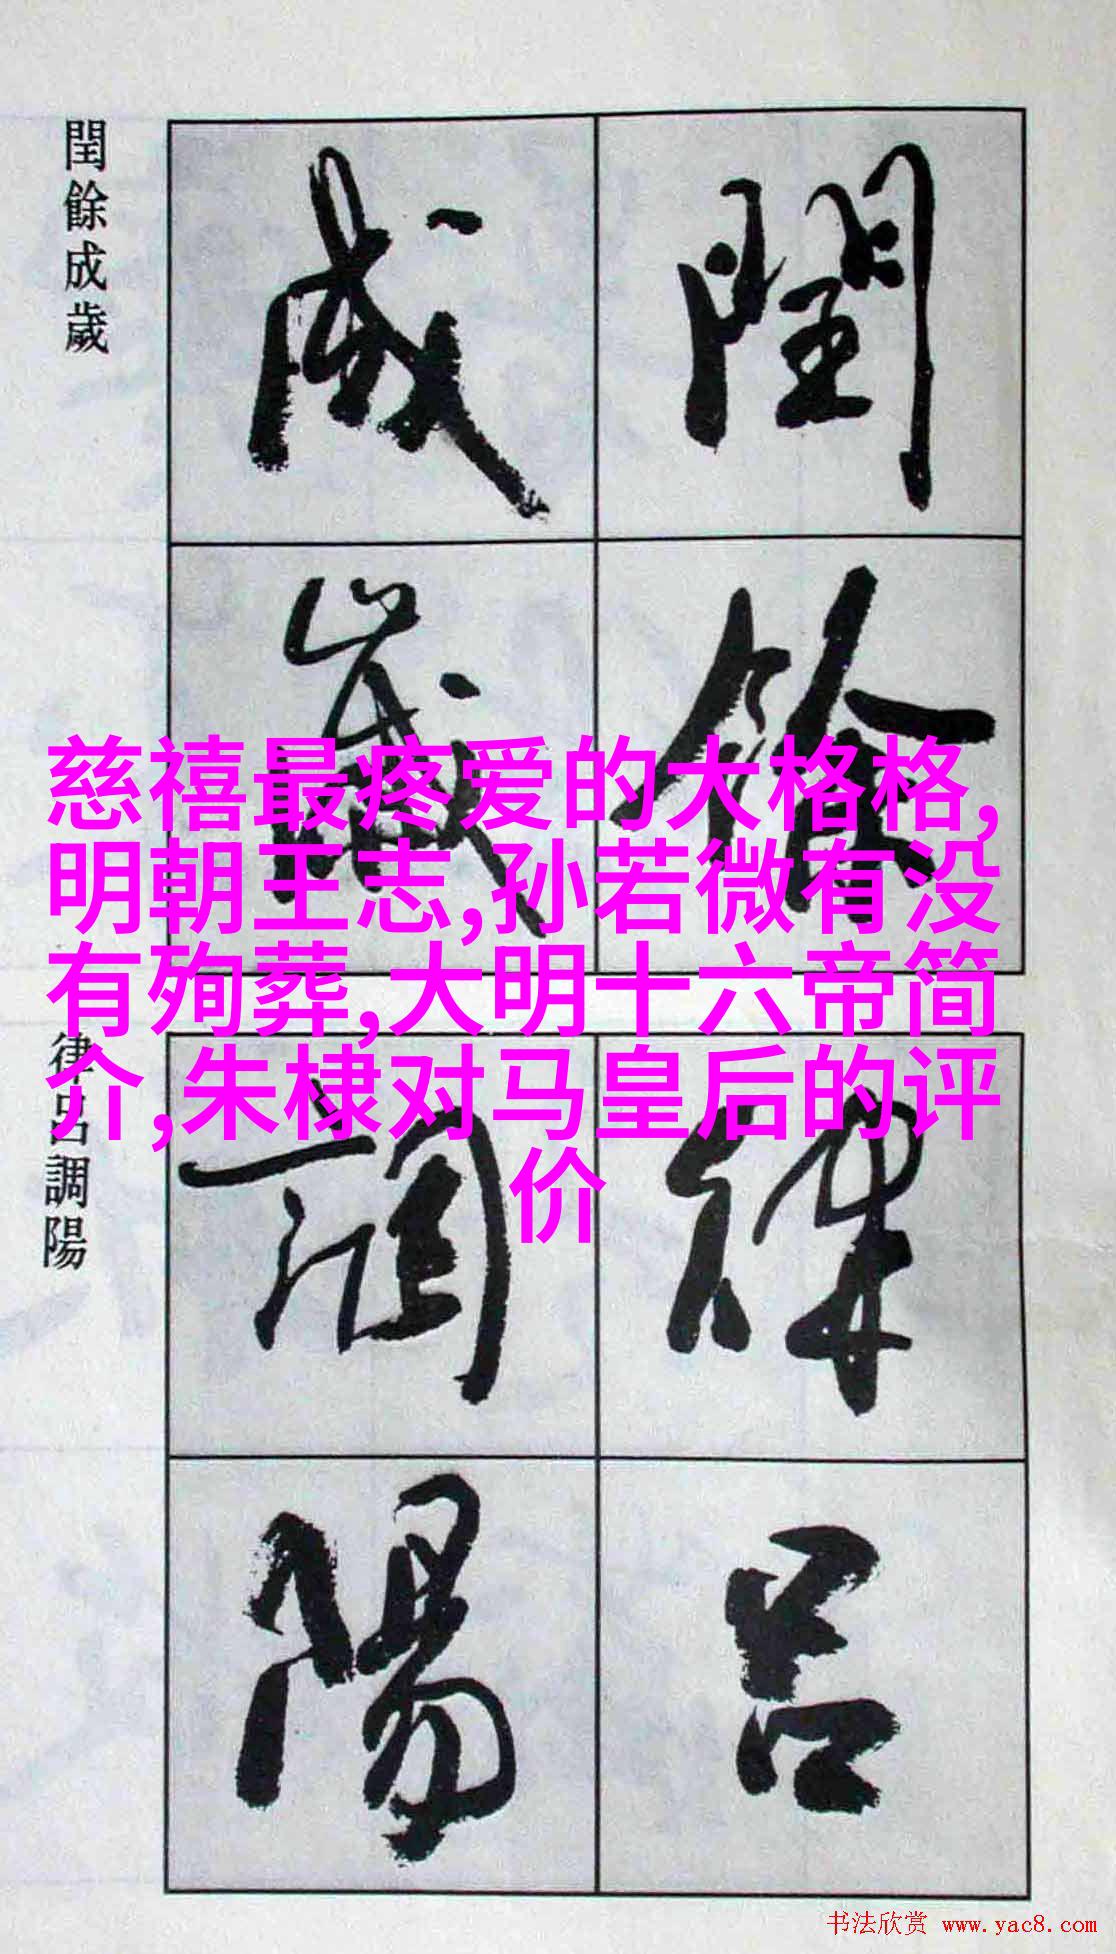 閏餘成歲
閏餘
成歲
慈禧最疼爱的大格格,
明朝王志,孙若微有没
有殉葬,大明十六帝简
介,朱棣对马皇后的评
价
律吕調陽
律吕
調陽
书法欣赏 www.yac8.com